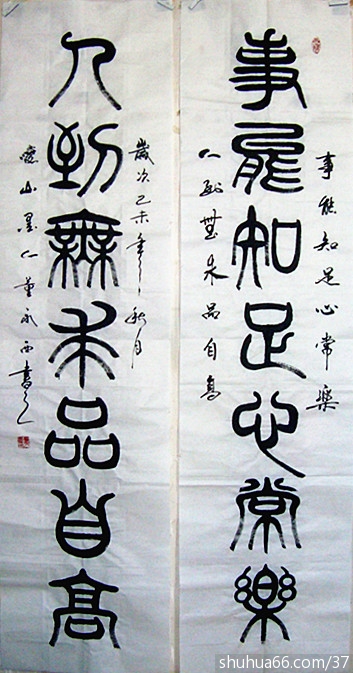 事能知足心常樂
事能知足心常樂
人到無求品自高
歲次己未年之秋月
人到無求品自高
山 董永西書之
shuhua66.com/37